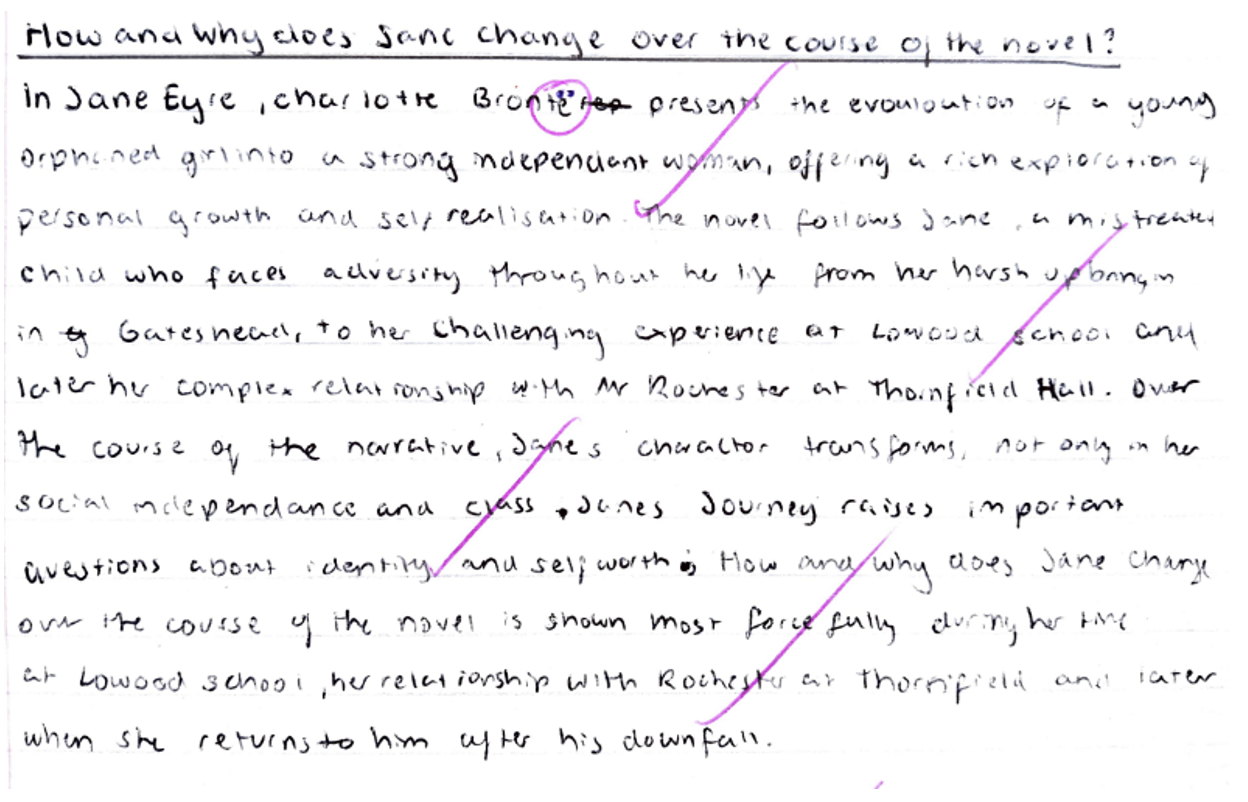 How and why does Jane change over the course of the novel?
In Jane Eyre, charlotte Brontë presents the evouloution of a young
orphaned girl into a strong independant woman, offering a rich exploration of
personal growth and self realisation. The novel follows Jane, a mistreated
child who faces adversity throughout her life from her harsh upbringin
in Gateshead, to her challenging experience at Lowood school and
later her complex relationship with Mr Rochester at Thornfield Hall. Over
the course of the narrative, Janes charactor transforms, not only in her
social independance and class. Janes Journey raises important
questions about identity, and self worth; How and why does Jane Change
over the course of the novel is shown most forcefully during her time
at Lowood school, her relationship with Rochester at Thornfield and later
when she returns to him after his downfall.